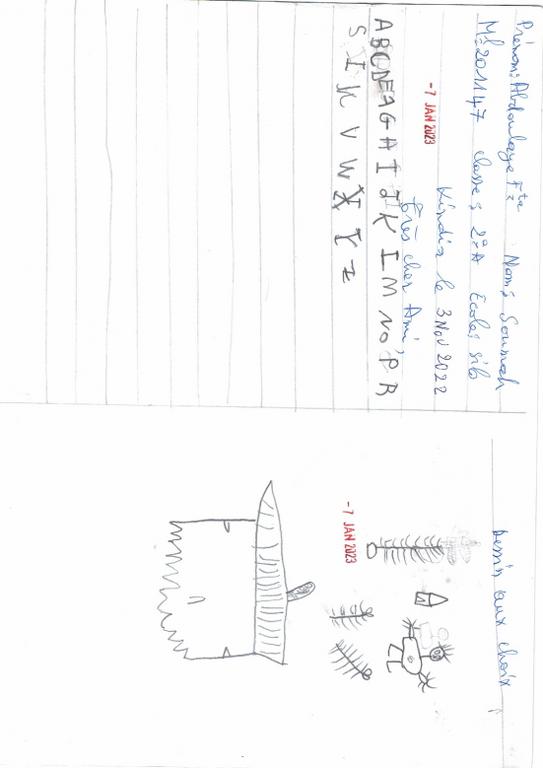 Prénom: Abdoulaye Fta Nom: Soumah
Mle: 201147 classe: 2e A Ecole: silo
Kindia le 3 Nov 2022
-7 JAN 2023
très cher Ami,
ABCDEFGAIJKIMNOPR
SIKVWXYZ
Dessin aux choix
-7 JAN 2023